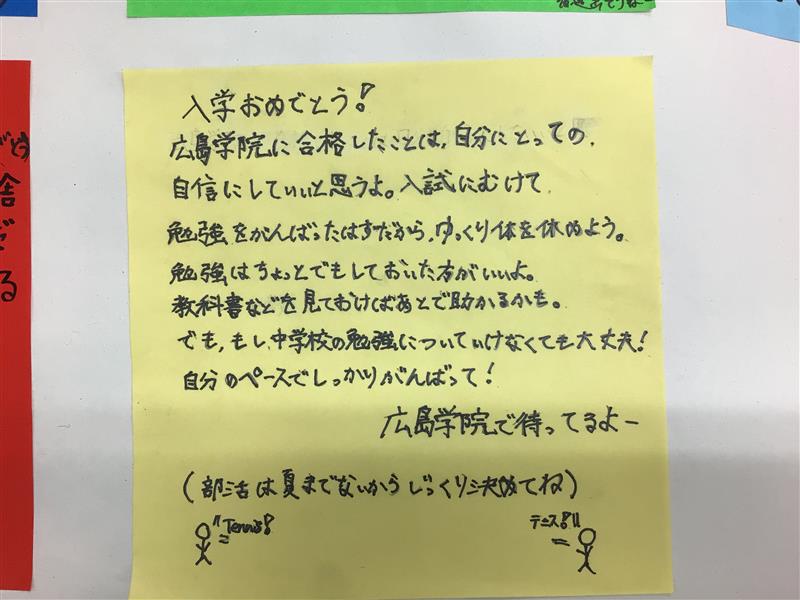 入学おめでとう!
広島学院に合格したことは,自分にとっての,
自信にしていいと思うよ。入試にむけて
勉強をがんばったはずだから,ゆっくり体を休めよう。
勉強はちょっとでもしておいた方がいいよ。
教科書などを見ておけばあとで助かるかも。
でも,もし,中学校の勉強についていけなくても大丈夫!
自分のペースでしっかりがんばって!
広島学院で待ってるよー
(部活は夏までないからじっくり決めてね)
Tennis!
テニス!!
舎
る